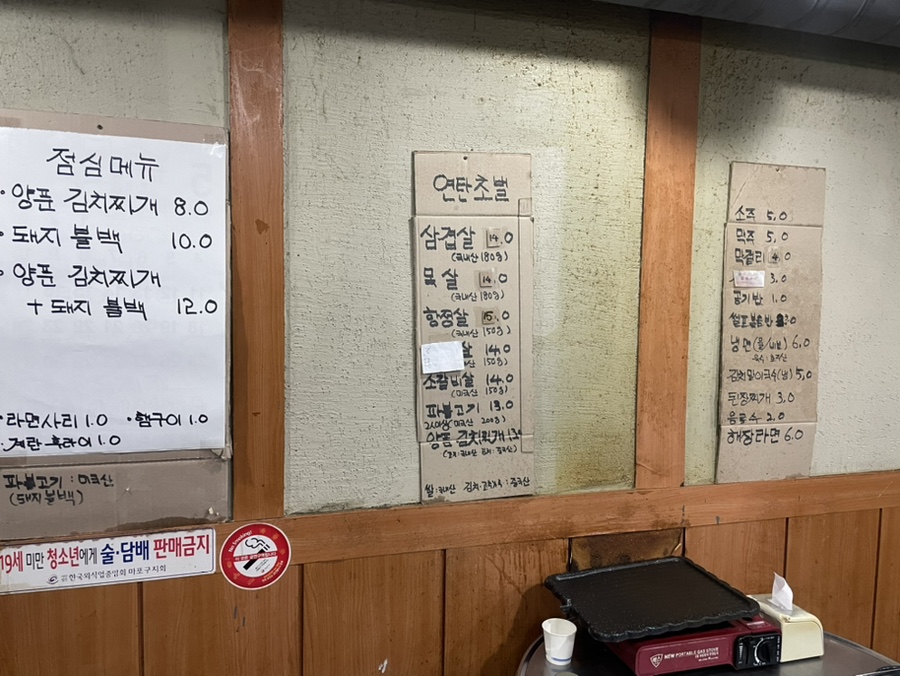 점심메뉴
• 양푼 김치찌개 8.0
• 돼지 불백 10.0
• 양푼 김치찌개
+ 돼지 불백 12.0
• 라면사리 1.0 • 햄구이 1.0
• 계란 후라이 1.0
파불고기 : 미국산
(돼지불백)
19세 미만 청소년에게 술·담배 판매금지
한국외식업중앙회 마포구지회
No Smoking
연탄초벌
삼겹살 14.0
(국내산 180g)
목살 14.0
(국내산 180g)
항정살 15.0
(국내산 150g)
살 14.0
150g)
소갈비살 14.0
(미국산 150g)
파불고기 13.0
2인이상 미국산 200g)
양푼 김치찌개
쌀:국내산 김치·고춧가루:중국산
소주 5.0
맥주 5.0
막걸리 4.0
3.0
공기밥 1.0
냉면(물/비빔) 6.0
김치말이국수(냉) 5.0
된장찌개 3.0
음료수 2.0
해장라면 6.0
NEW PORTABLE GAS STOVE